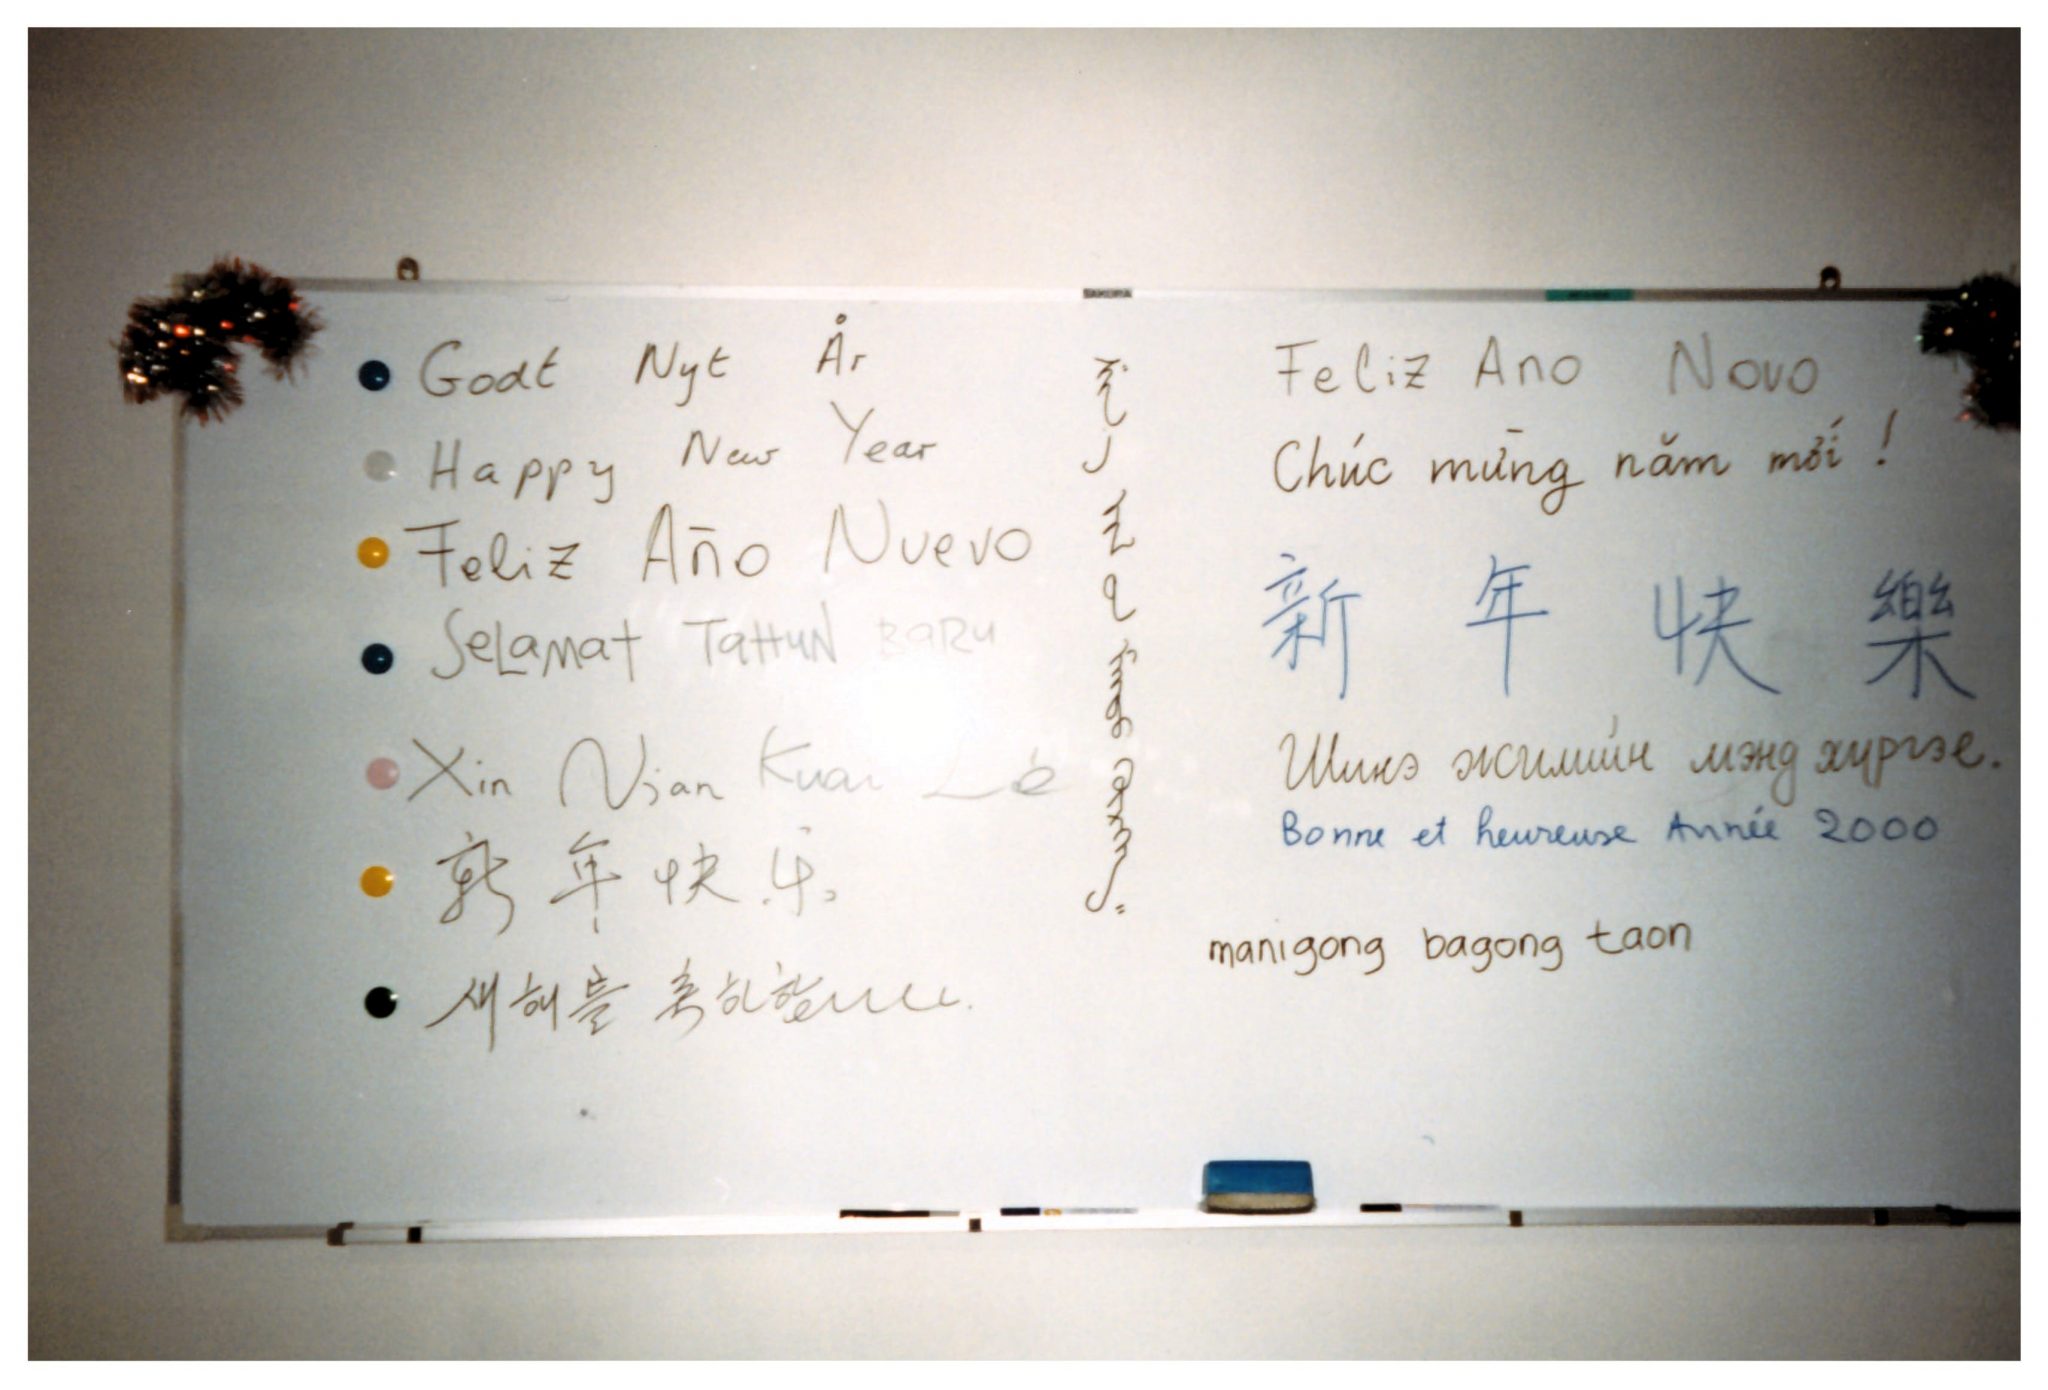 Godt Nyt År
Happy New Year
Feliz Año Nuevo
SeLaMaT TaHuN BaRu
Xin Nian Kuai Le
新年快乐
새해를 축하합니다.
Feliz Ano Novo
Chúc mừng năm mới!
新年快樂
Шинэ жилийн мэнд хүргэе.
Bonne et heureuse Année 2000
manigong bagong taon